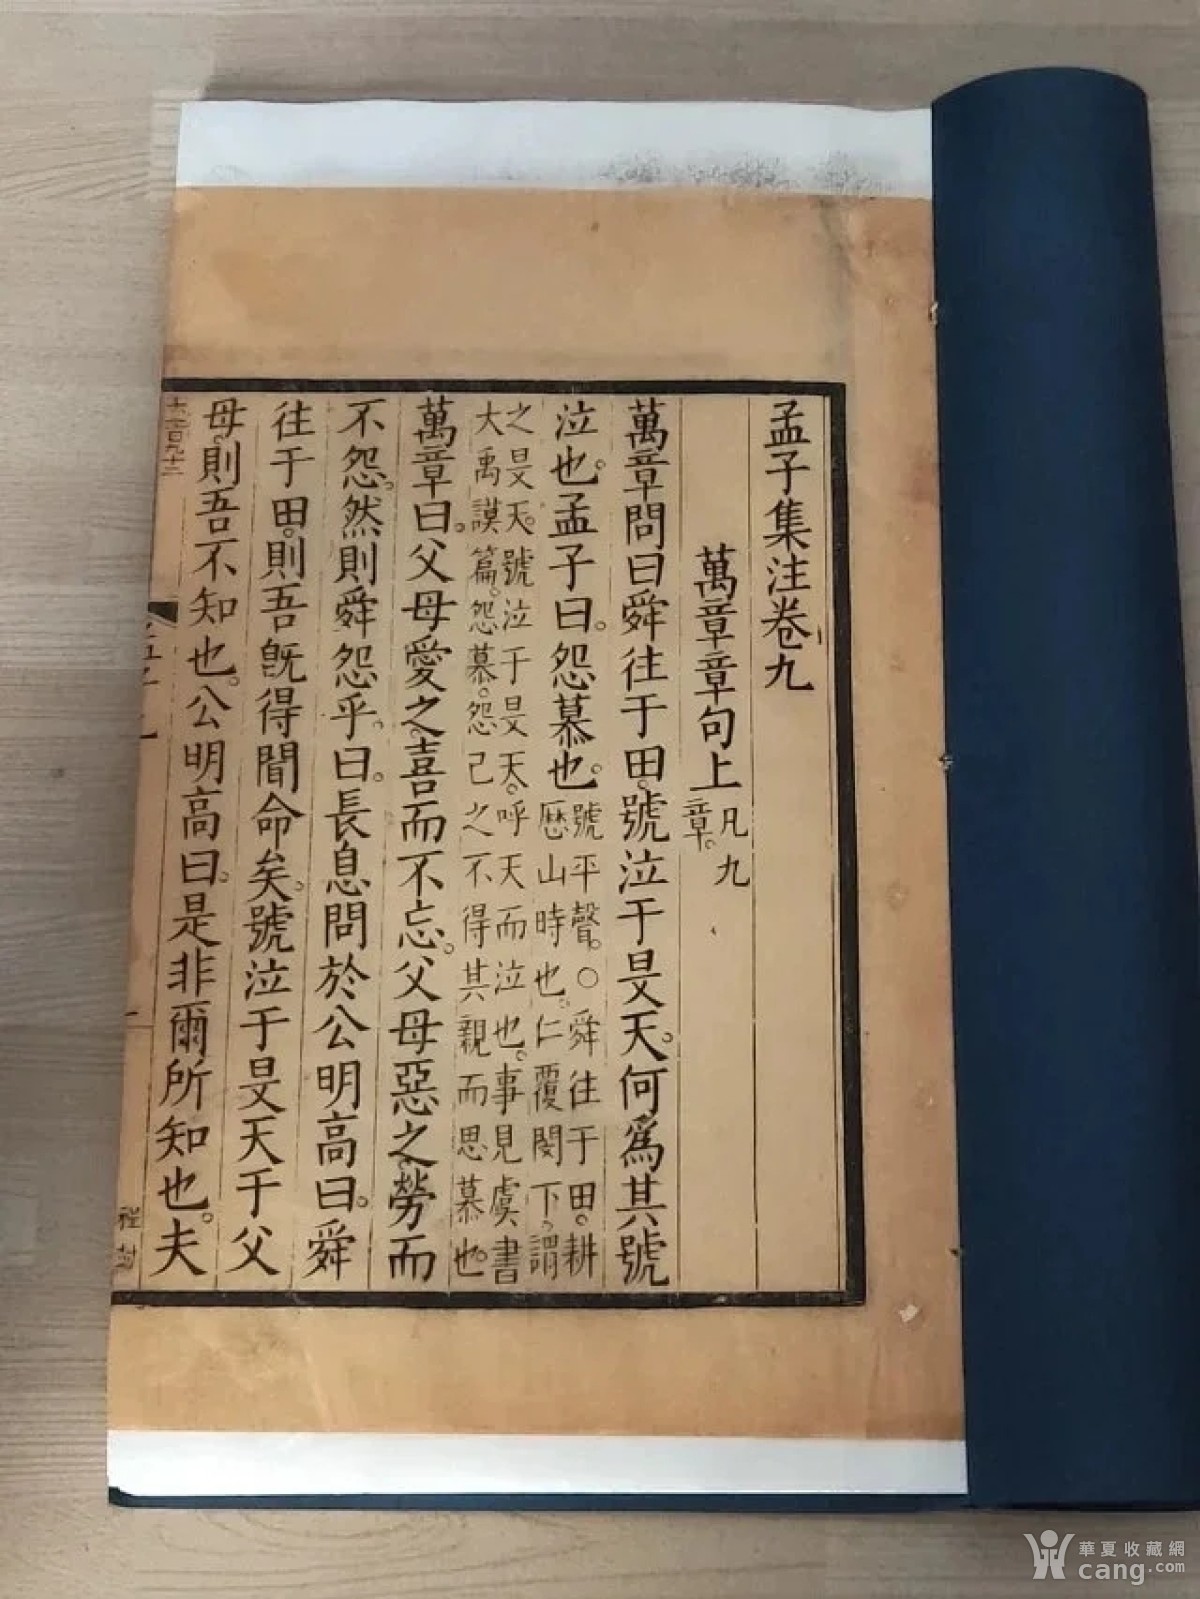 孟子集注卷九
萬章章句上凡九
章。
萬章問曰舜往于田。號泣于旻天。何爲其號
泣也。孟子曰。怨慕也。號平聲。○舜往于田。耕
歷山時也。仁覆閔下。謂
之旻天。號泣于旻天。呼天而泣也。事見虞書
大禹謨篇。怨慕。怨己之不得其親而思慕也。
萬章曰。父母愛之。喜而不忘。父母惡之。勞而
不怨。然則舜怨乎。曰。長息問於公明高曰。舜
往于田。則吾旣得聞命矣。號泣于旻天于父
母。則吾不知也。公明高曰。是非爾所知也。夫
華夏收藏網
cang.com